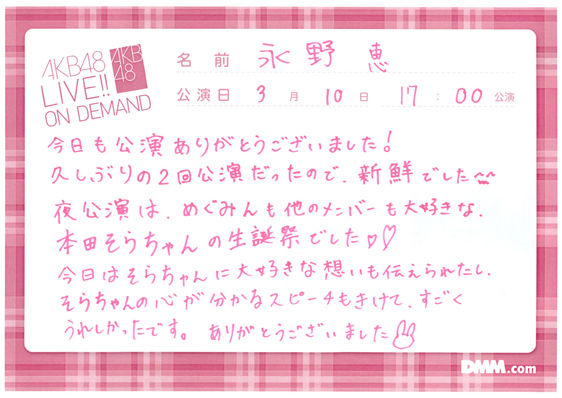 AKB48
LIVE!!
ON DEMAND
AKB
48
名前 永野 恵
公演日 3月10日 17:00公演
今日も公演ありがとうございました!
久しぶりの2回公演だったので、新鮮でした
夜公演は、めぐみんも他のメンバーも大好きな、
本田そらちゃんの生誕祭でした♡♡
今日はそらちゃんに大好きな想いも伝えられたし、
そらちゃんの心が分かるスピーチもきけて、すごく
うれしかったです。 ありがとうございました
DMM.com